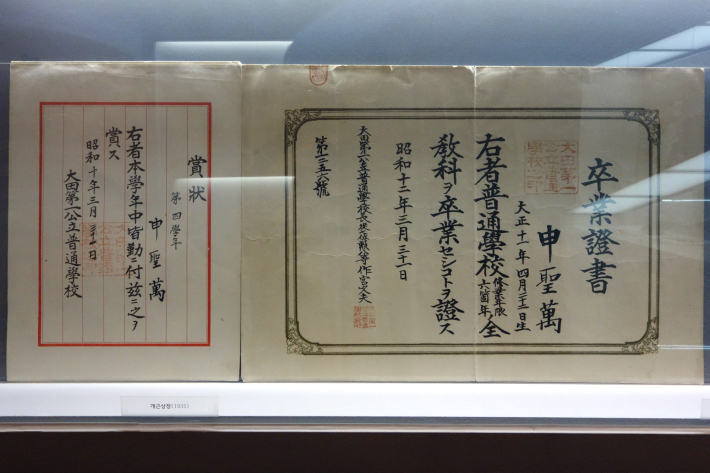 卒業證書
申聖萬
大正十一年四月二十二日生
右者普通學校修業年限六箇年ノ全
教科ヲ卒業セシコトヲ證ス
昭和十二年三月三十一日
大田第一公立普通學校長
賞狀
第四學年
申聖萬
右者本學年中皆勤ニ付茲ニ之ヲ
賞ス
昭和十年三月
大田第一公立普通學校
개근상장(1935)